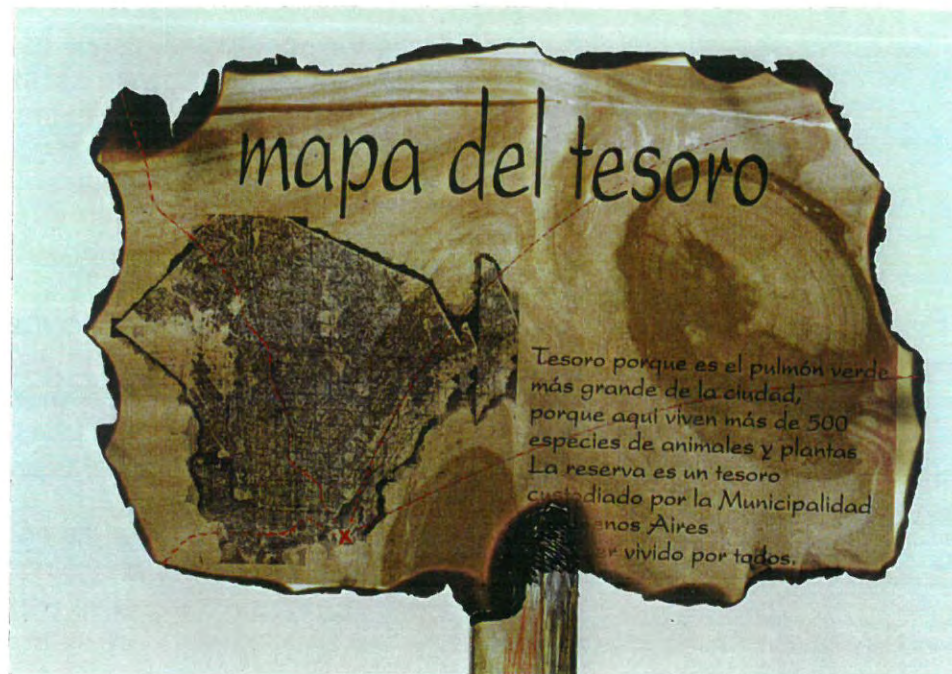 mapa del tesoro
Tesoro porque es el pulmón verde
más grande de la ciudad,
porque aquí viven más de 500
especies de animales y plantas
La reserva es un tesoro
custodiado por la Municipalidad
enos Aires
er vivido por todos.
X